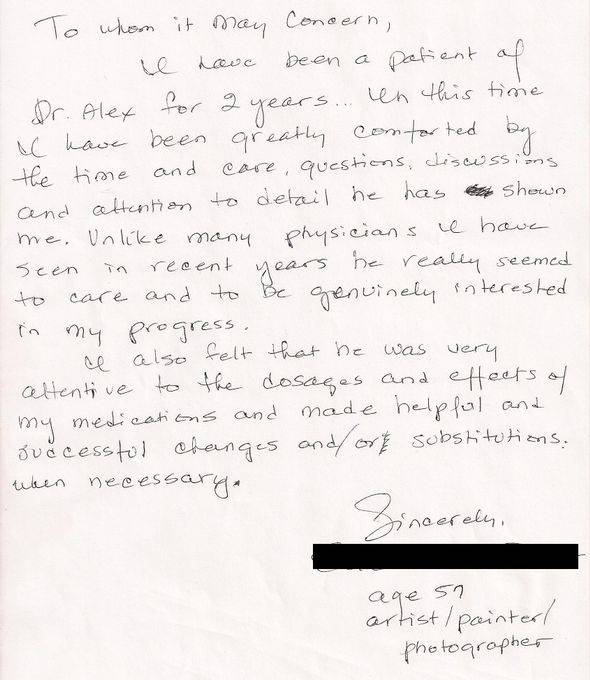 To whom it May Concern,
I have been a patient of
Dr. Alex for 2 years... In this time
I have been greatly comforted by
the time and care, questions, discussions
and attention to detail he has shown
me. Unlike many physicians I have
seen in recent years he really seemed
to care and to be genuinely interested
in my progress.
I also felt that he was very
attentive to the dosages and effects of
my medications and made helpful and
successful changes and/or substitutions.
when necessary.
Sincerely,
age 57
artist/painter/
photographer